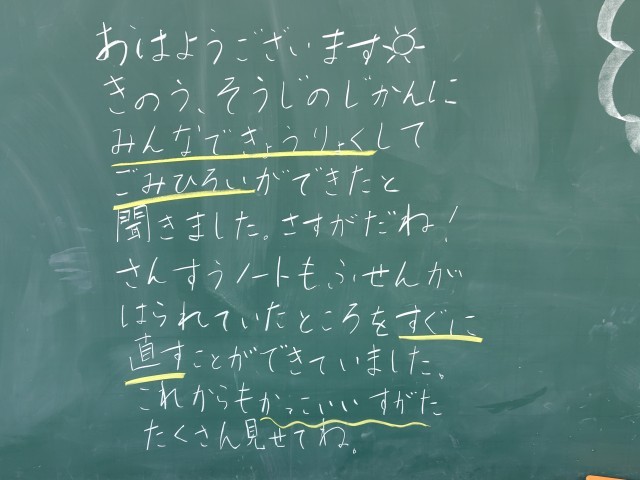 おはようございます☀
きのう、そうじのじかんに
みんなできょうりょくして
ごみひろいができたと
聞きました。さすがだね!
さんすうノートもふせんが
はられていたところをすぐに
直すことができていました。
これからもかっこいいすがた
たくさん見せてね。